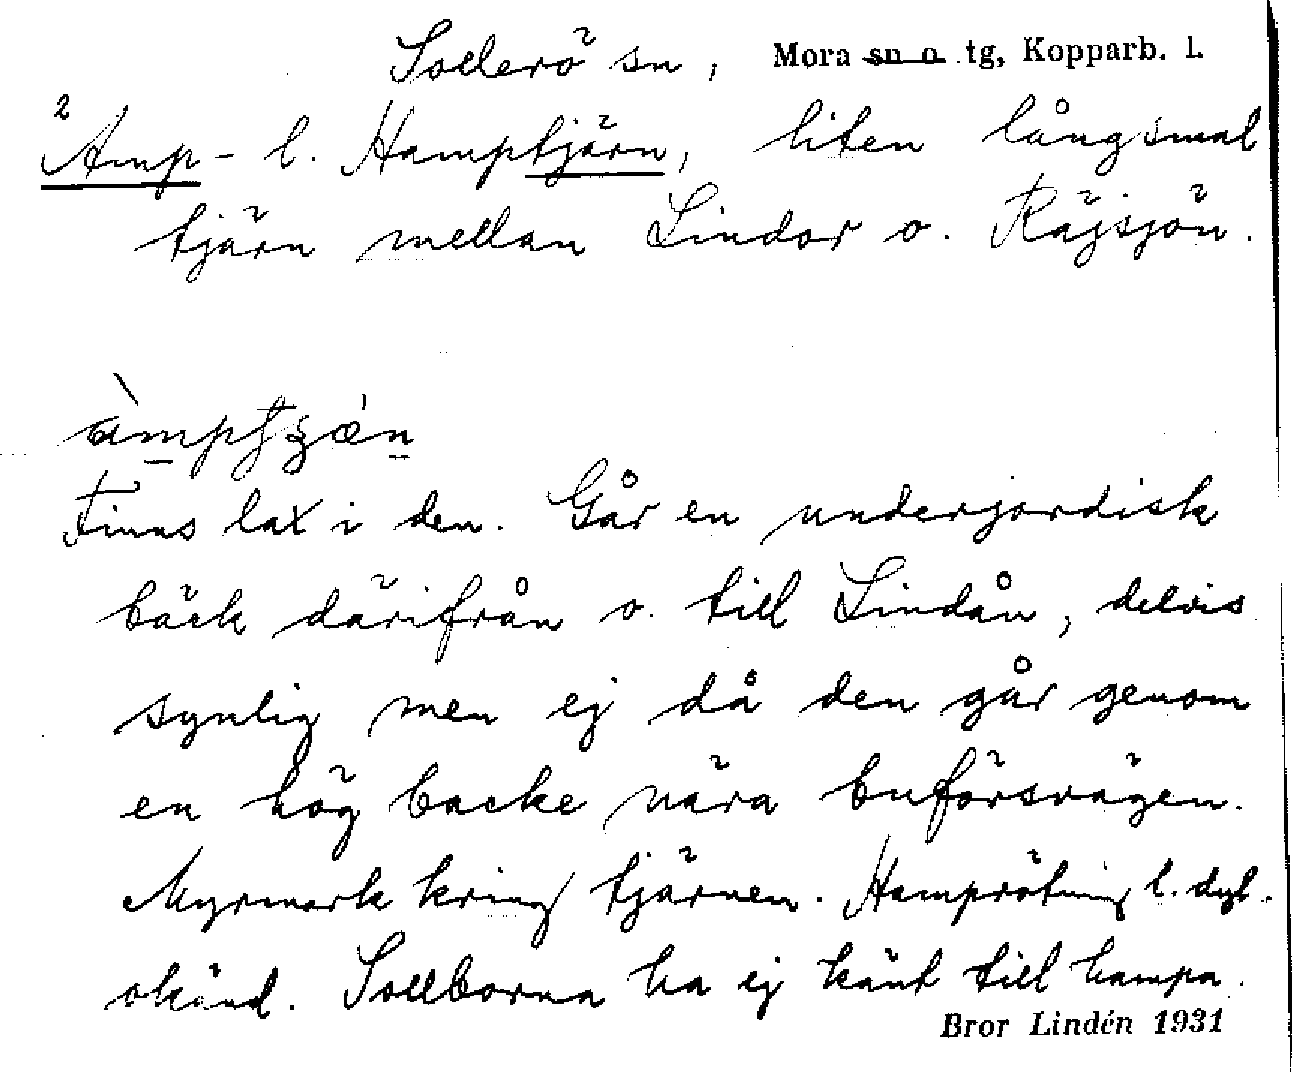 Sollerö sn, Mora sn o. tg, Kopparb. l.
2 Amp- l. Hamptjärn, liten långsmal
tjärn mellan Lindor o. Räjsjön.
Finns lax i den. Går en underjordisk
bäck därifrån o. till Lindån, delvis
synlig men ej då den går genom
en hög backe nära buförsvägen.
Myrmark kring tjärnen. Hamprötning l. dyl.
okänd. Sollborna ha ej känt till hampa.
Bror Lindén 1931